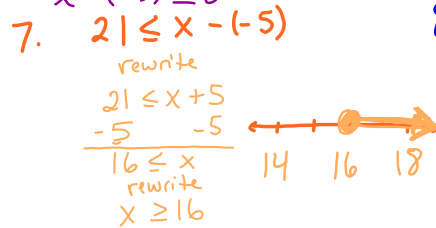 7. 21 ≤ x - (-5)
rewrite
21 ≤ x + 5
-5 -5
16 ≤ x
rewrite
x ≥ 16
14 16 18